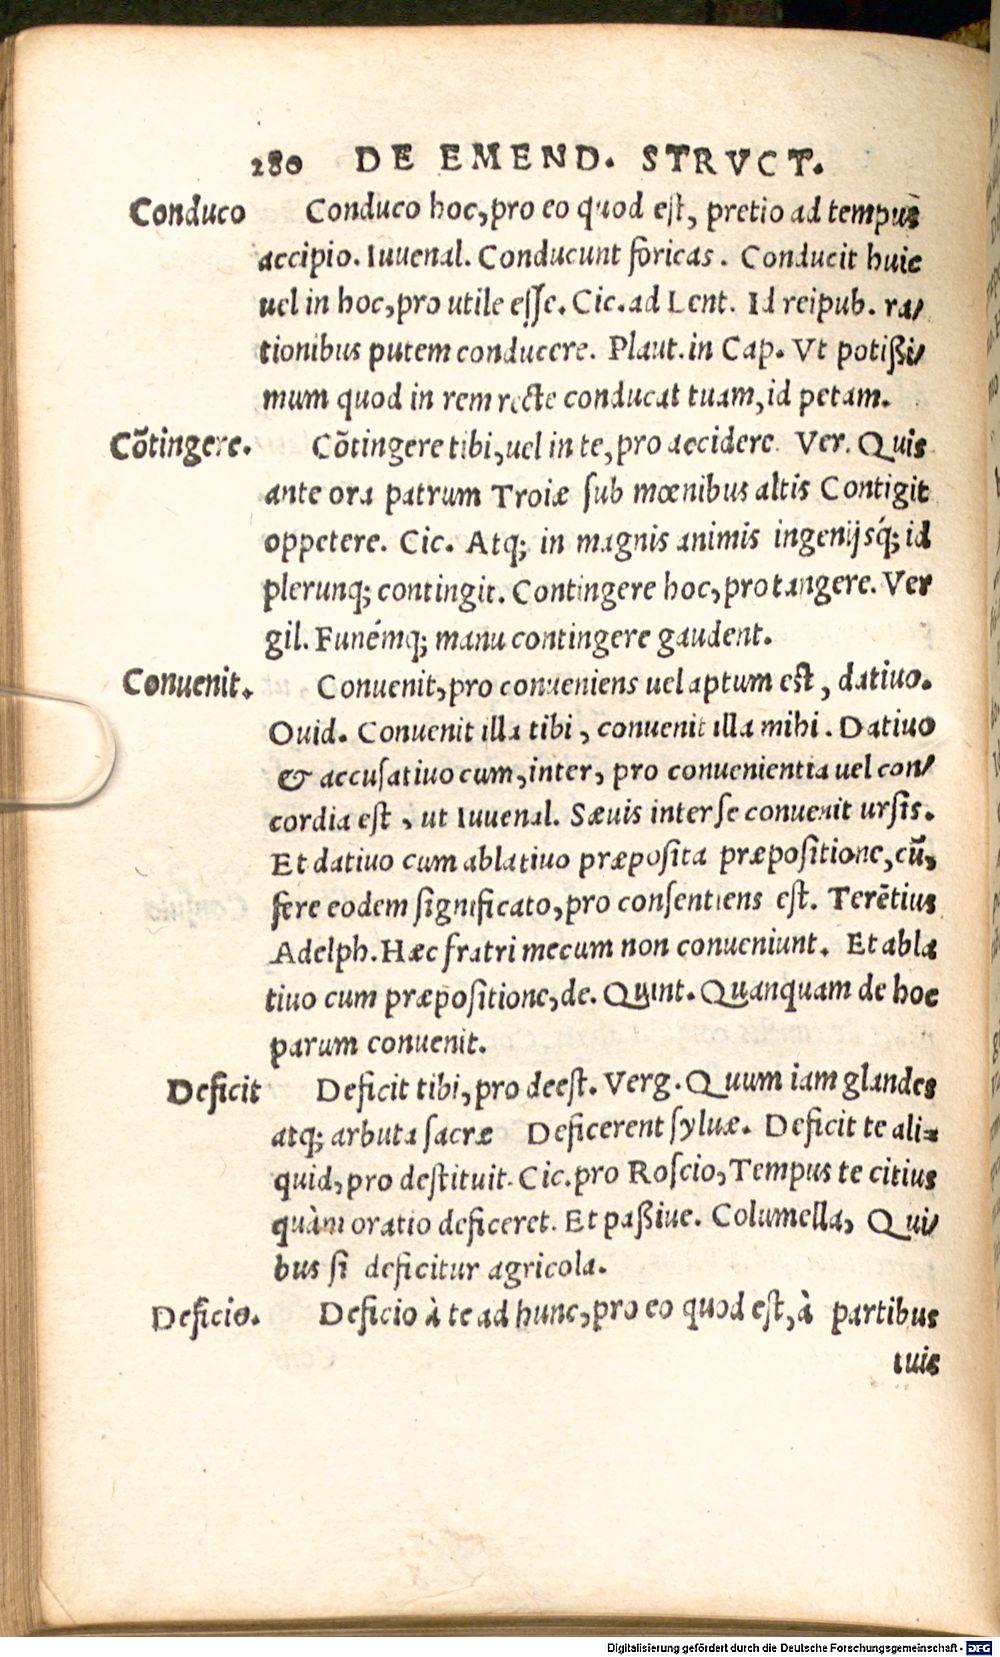 280 DE EMEND. STRVCT.
Conduco Conduco hoc, pro eo quod eſt, pretio ad tempus
accipio. Iuuenal. Conducunt foricas. Conducit huic
uel in hoc, pro utile eſſe. Cic. ad Lent. Id reipub. ra/
tionibus putem conducere. Plaut. in Cap. Vt potißi/
mum quod in rem recte conducat tuam, id petam.
Cõtingere. Cõtingere tibi, uel in te, pro accidere. Ver. Quis
ante ora patrum Troiæ ſub mœnibus altis Contigit
oppetere. Cic. Atq; in magnis animis ingenijsq́; id
plerunq; contingit. Contingere hoc, pro tangere. Ver
gil. Funémq; manu contingere gaudent.
Conuenit. Conuenit, pro conueniens uel aptum eſt, datiuo.
Ouid. Conuenit illa tibi, conuenit illa mihi. Datiuo
& accuſatiuo cum, inter, pro conuenientia uel con/
cordia eſt, ut Iuuenal. Sæuis inter ſe conuenit urſis.
Et datiuo cum ablatiuo præpoſita præpoſitione, cũ,
fere eodem ſignificato, pro conſentiens eſt. Terẽtius
Adelph. Hæc fratri mecum non conueniunt. Et abla
tiuo cum præpoſitione, de. Quint. Quanquam de hoc
parum conuenit.
Deficit Deficit tibi, pro deeſt. Verg. Quum iam glandes
atq; arbuta ſacræ Deficerent ſyluæ. Deficit te ali=
quid, pro deſtituit. Cic. pro Roſcio, Tempus te citius
quàm oratio deficeret. Et paßiue. Columella, Qui/
bus ſi deficitur agricola.
Deficio. Deficio à te ad hunc, pro eo quod eſt, à partibus
tuis
Digitalisierung gefördert durch die Deutsche Forschungsgemeinschaft - DFG